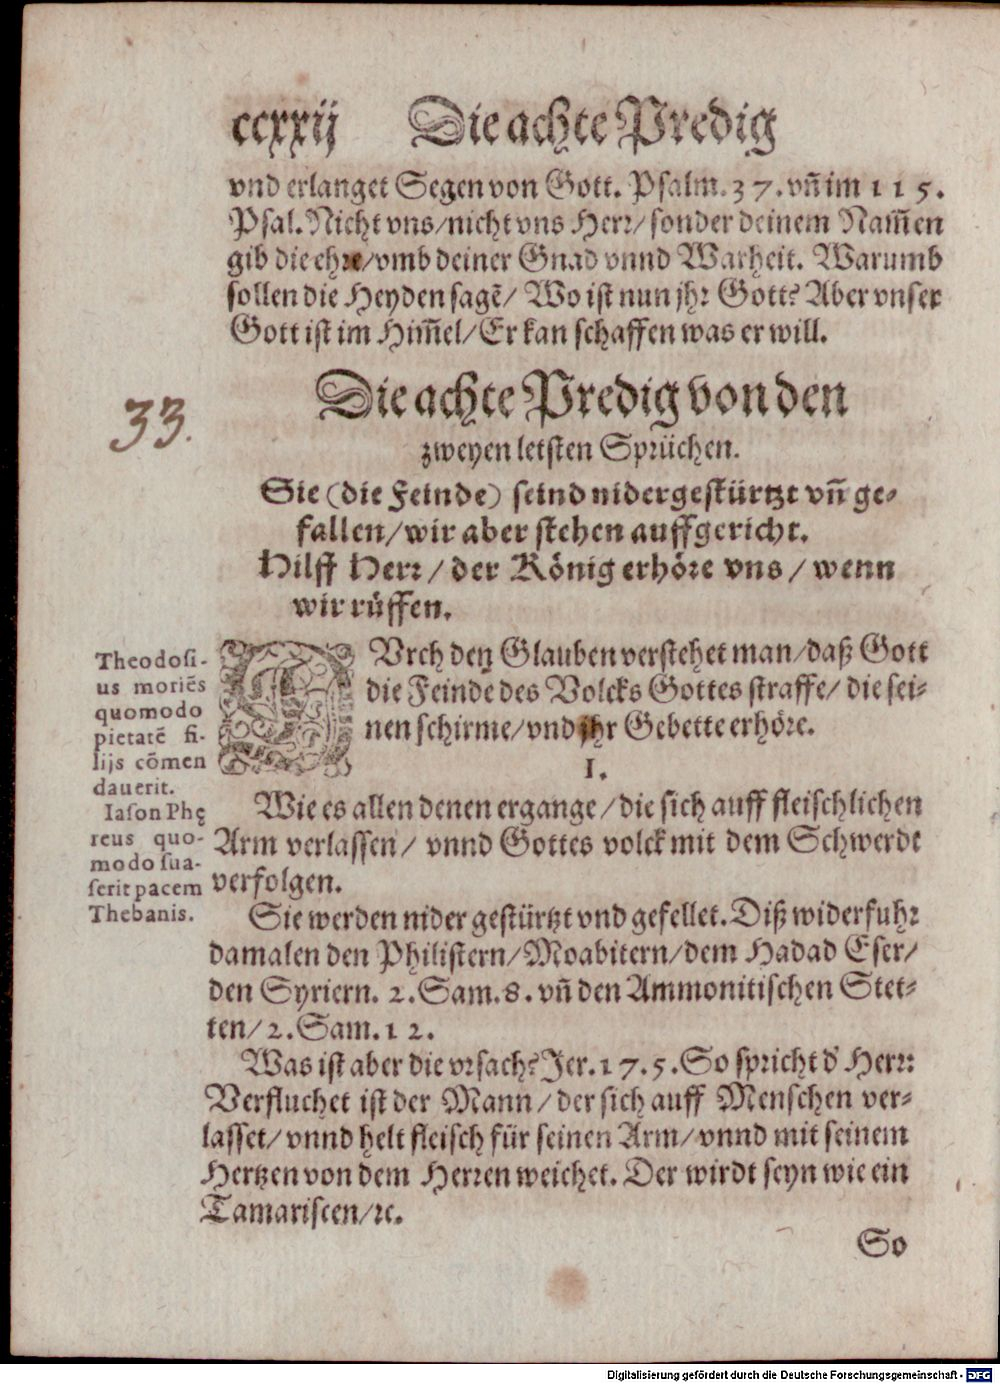 ccxxij Die achte Predig
vnd erlanget Segen von Gott. Psalm. 37. vñ im 115.
Psal. Nicht vns/nicht vns Herr/sonder deinem Nam̃en
gib die ehre/vmb deiner Gnad vnnd Warheit. Warumb
sollen die Heyden sagẽ/ Wo ist nun jhr Gott? Aber vnser
Gott ist im Him̃el/Er kan schaffen was er will.
Die achte Predig von den
zweyen letsten Sprüchen.
33.
Sie (die Feinde) seind nidergestürtzt vñ ge-
fallen/wir aber stehen auffgericht.
Hilff Herr/der König erhöre vns/wenn
wir rüffen.
DVrch den Glauben verstehet man/daß Gott
die Feinde des Volcks Gottes straffe/die sei-
nen schirme/vnd jhr Gebette erhöre.
Theodosi-
us moriẽs
quomodo
pietatẽ fi-
lijs cõmen
dauerit.
Iason Phę
reus quo-
modo sua-
serit pacem
Thebanis.
I.
Wie es allen denen ergange/die sich auff fleischlichen
Arm verlassen/ vnnd Gottes volck mit dem Schwerdt
verfolgen.
Sie werden nider gestürtzt vnd gefellet. Diß widerfuhr
damalen den Philistern/Moabitern/dem Hadad Eser/
den Syriern. 2. Sam. 8. vñ den Ammonitischen Stet-
ten/2. Sam. 12.
Was ist aber die vrsach? Jer. 17. 5. So spricht d' Herr:
Verfluchet ist der Mann/der sich auff Menschen ver-
lasset/vnnd helt fleisch für seinen Arm/vnnd mit seinem
Hertzen von dem Herren weichet. Der wirdt seyn wie ein
Tamariscen/ꝛc.
So
Digitalisierung gefördert durch die Deutsche Forschungsgemeinschaft - DFG